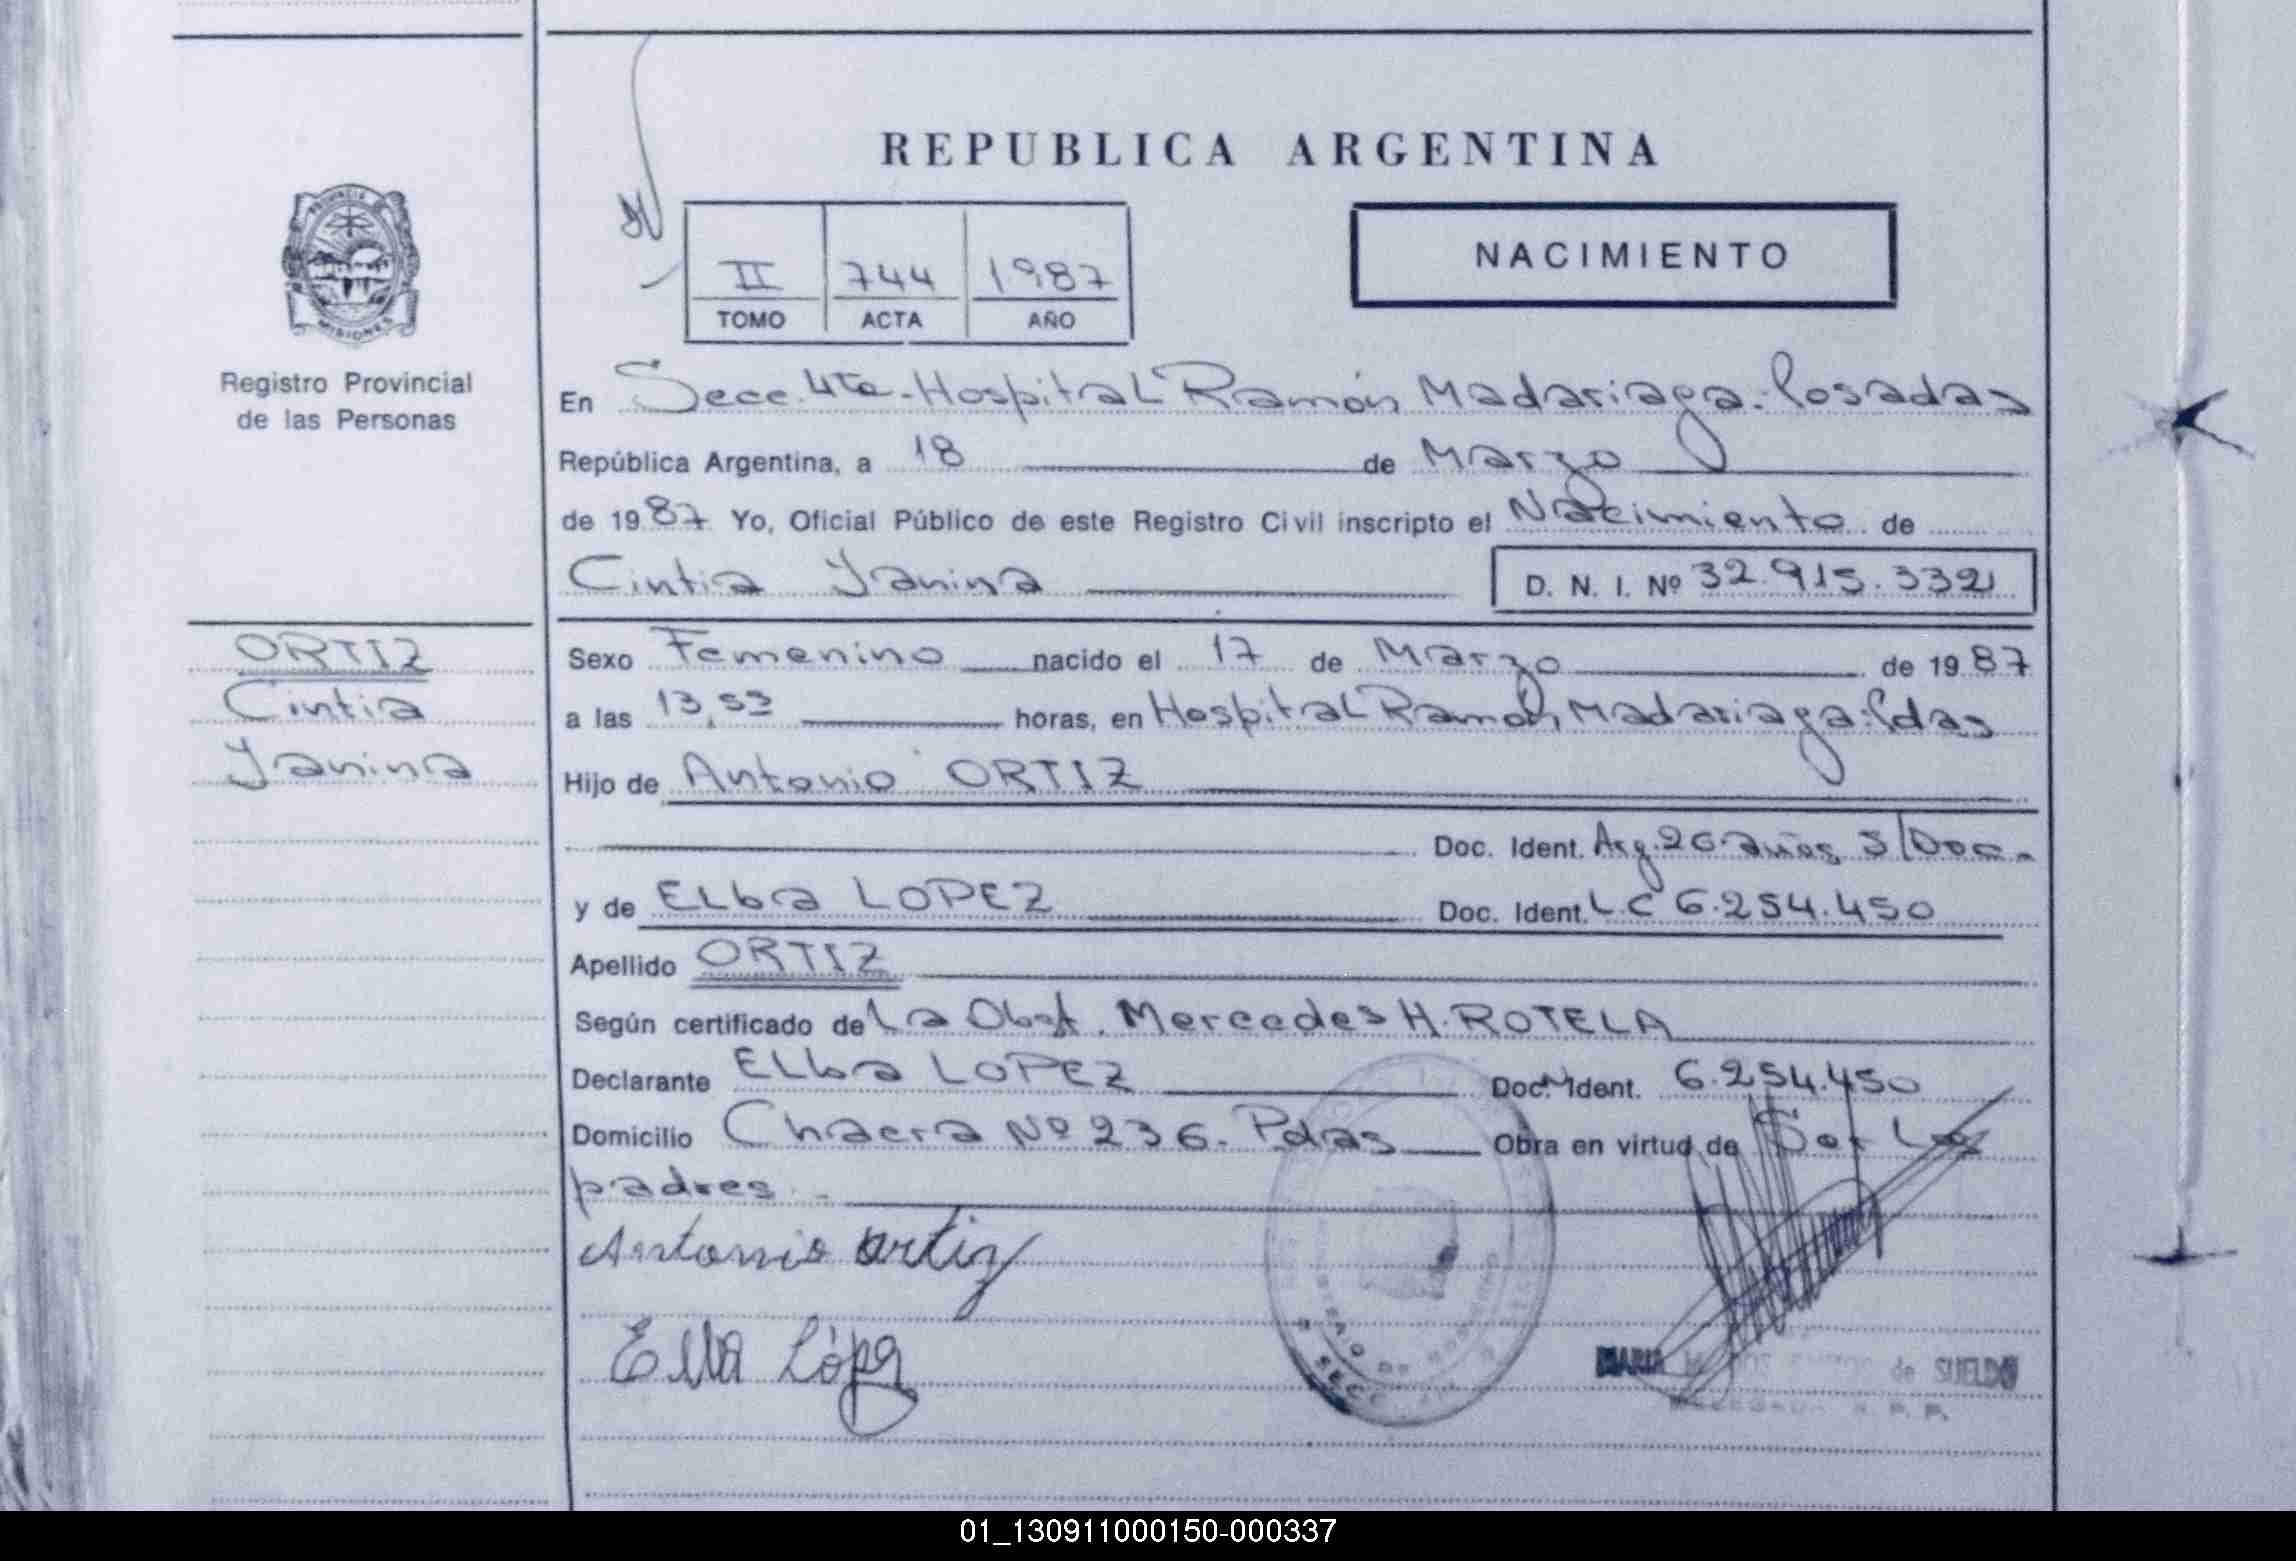 REPUBLICA ARGENTINA
NACIMIENTO
II 744 1987
TOMO ACTA AÑO
PROVINCIA DE
MISIONES
Registro Provincial
de las Personas
En Secc. 4ta - Hospital Ramón Madariaga - Posadas
República Argentina, a 18 de Marzo
de 1987 Yo, Oficial Público de este Registro Civil inscripto el Nacimiento de
Cintia Yanina D. N. I. Nº 32.915.332
ORTIZ
Cintia
Yanina
Sexo Femenino nacido el 17 de Marzo de 1987
a las 13,53 horas, en Hospital Ramón Madariaga - Pdas
Hijo de Antonio ORTIZ
Doc. Ident. Arg. 26 años S/Doc.
y de ELba LOPEZ Doc. Ident. L.C 6.254.450
Apellido ORTIZ
Según certificado de La Obst. Mercedes H. ROTELA
Declarante ELba LOPEZ Doc. Ident. 6.254.450
Domicilio Chacra Nº 236 - Pdas Obra en virtud de Ser Los
padres
Antonio Ortiz
Elba López
MARIA de SUELDO
R. P. P.
01_130911000150-000337